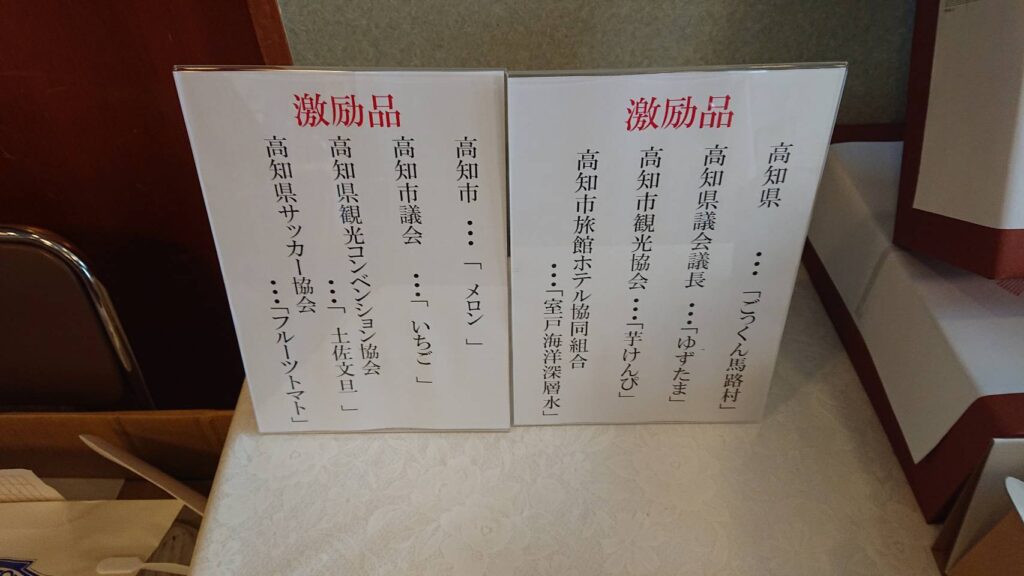 激励品
高知県 ・・・「ごっくん馬路村」
高知県議会議長 ・・・「ゆずたま」
高知市観光協会・・・「芋けんぴ」
高知市旅館ホテル協同組合
・・・「室戸海洋深層水」
激励品
高知市 ・・・「メロン」
高知市議会 ・・・「いちご」
高知県観光コンベンション協会
・・・「土佐文旦」
高知県サッカー協会
・・・「フルーツトマト」